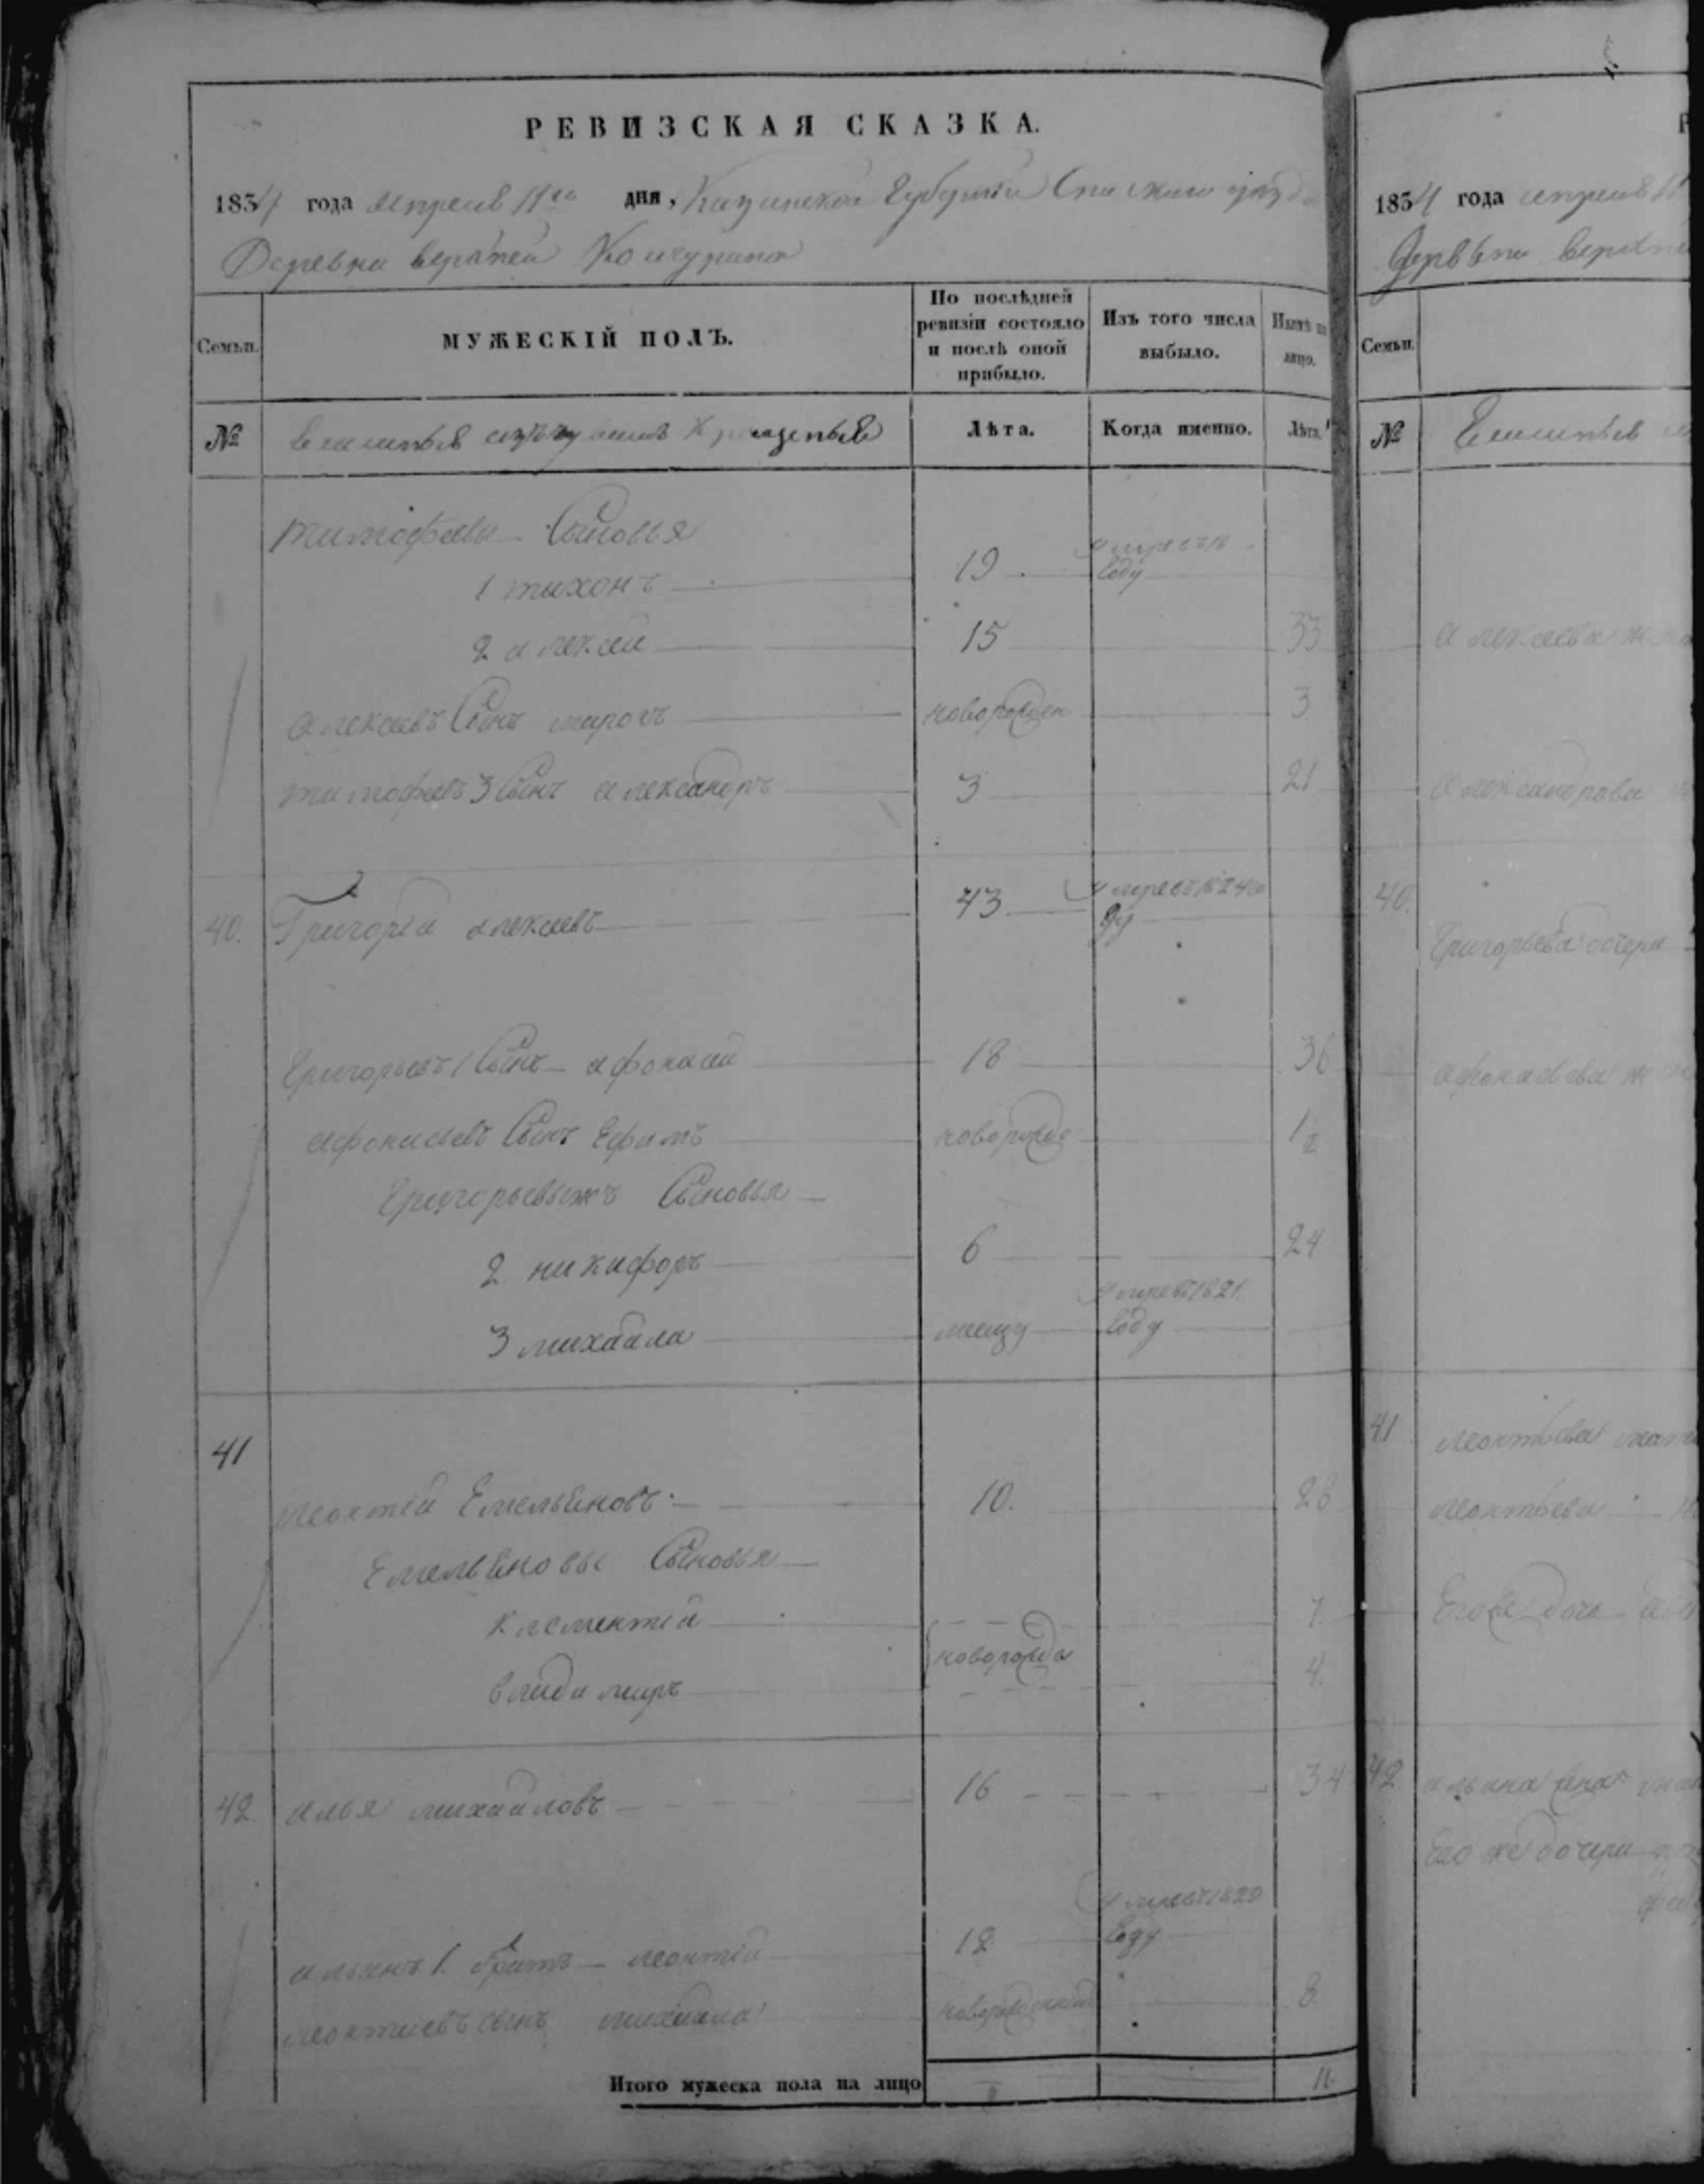 РЕВИЗСКАЯ СКАЗКА.
1834 года апреля 11го дня, Казанской Губернии Спаскаго уезда
Деревни верхней Кочкурина
Семьи.
МУЖЕСКІЙ ПОЛЪ.
По послѣдней ревизіи состояло и послѣ оной прибыло.
Изъ того числа выбыло.
Нынѣ на лицо.
№
Лѣта.
Когда именно.
Лѣта.
Тимофеевы Сыновья
1 тихонъ 19 умре въ
году
2 алексей 15 33
алексеевъ Сынъ новорожден 3
тимофеевъ 3 Сынъ александръ 3 21
40. Григорій алексеевъ 43 умре въ 1824 го
ду
Григорьевъ 1 Сынъ афонасей 18 36
афонасьевъ Сынъ Ефимъ новорожде 1/2
Григорьевыжъ Сыновья
2 никифоръ 6 24
3 михайла умре въ 1821
году
41
леонтій Емельяновъ 10. 28
Емельяновы Сыновья
клементій 7
новорожде
владимиръ 4.
42 илья михайловъ 16 34
ильинъ 1. братъ леонтій 12 умре въ 1829
году
леонтиевъ сынъ михайла новорожденной 8
Итого мужеска пола на лицо 11.
1834 года апреля 11
Семьи.
№
алексеева
александрова
40.
Григорьева дочери
афонасьева
41 леонтьева
леонтьева
Егоже дочь
42.
Его же дочери